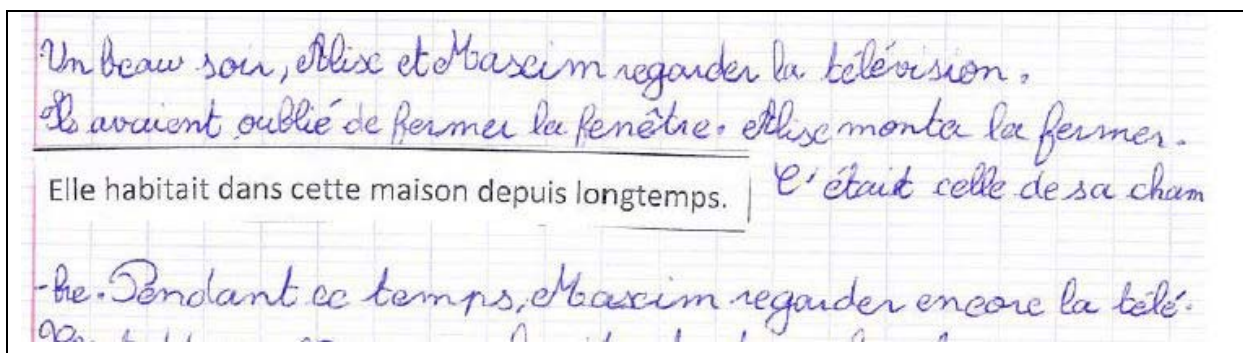 Un beau soir, Alise et Maxcim regarder la télévision.
Ils avaient oublié de fermer la fenêtre. Alise monta la fermer.
Elle habitait dans cette maison depuis longtemps. C'était celle de sa cham
-bre. Pendant ce temps, Maxcim regarder encore la télé.